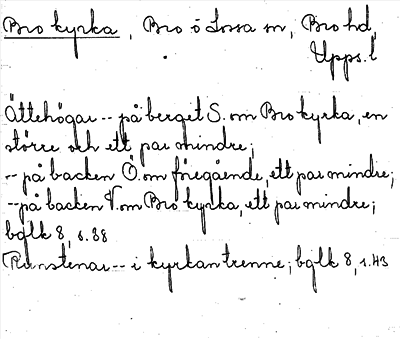 Bro kyrka, Bro o Lossa sn, Bro hd,
Upps. l
Ättehögar -- på berget S. om Bro kyrka, en
större och ett par mindre;
-- på backen Ö. om föregående, ett par mindre;
-- på backen V. om Bro kyrka, ett par mindre;
bglk 8, s. 38
Runstenar -- i kyrkan trenne; bglk 8, s. 43